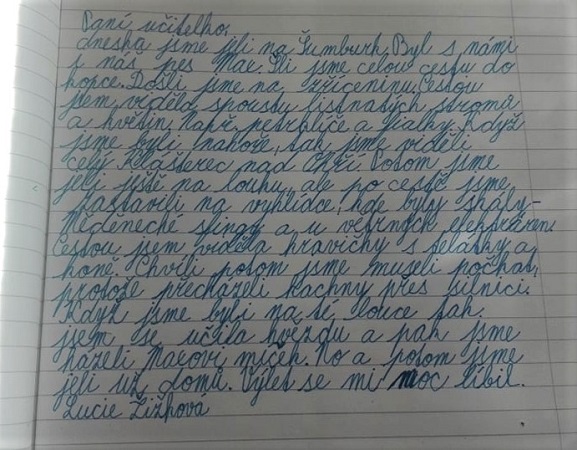 Paní učitelko,
dneska jsme jeli na Šumburk. Byl s námi
i náš pes Mac. Šli jsme celou cestu do
kopce. Došli jsme na zříceninu. Cestou
jsem viděla spoustu listnatých stromů
a květin. Např. petrklíče a fialky. Když
jsme byli nahoře, tak jsme viděli
celý Klášterec nad Ohří. Potom jsme
jeli ještě na louku, ale po cestě jsme
zastavili na vyhlídce, kde byly skály-
Měděnecké sfingy a u větrných elektráren.
Cestou jsem viděla kravičky s telátky a
koně. Chvíli potom jsme museli počkat,
protože přecházeli kachny přes silnici.
Když jsme byli na té louce tak
jsem se učila hvězdu a pak jsme
házeli Macovi míček. No a potom jsme
jeli už domů. Výlet se mi moc líbil.
Lucie Žižková